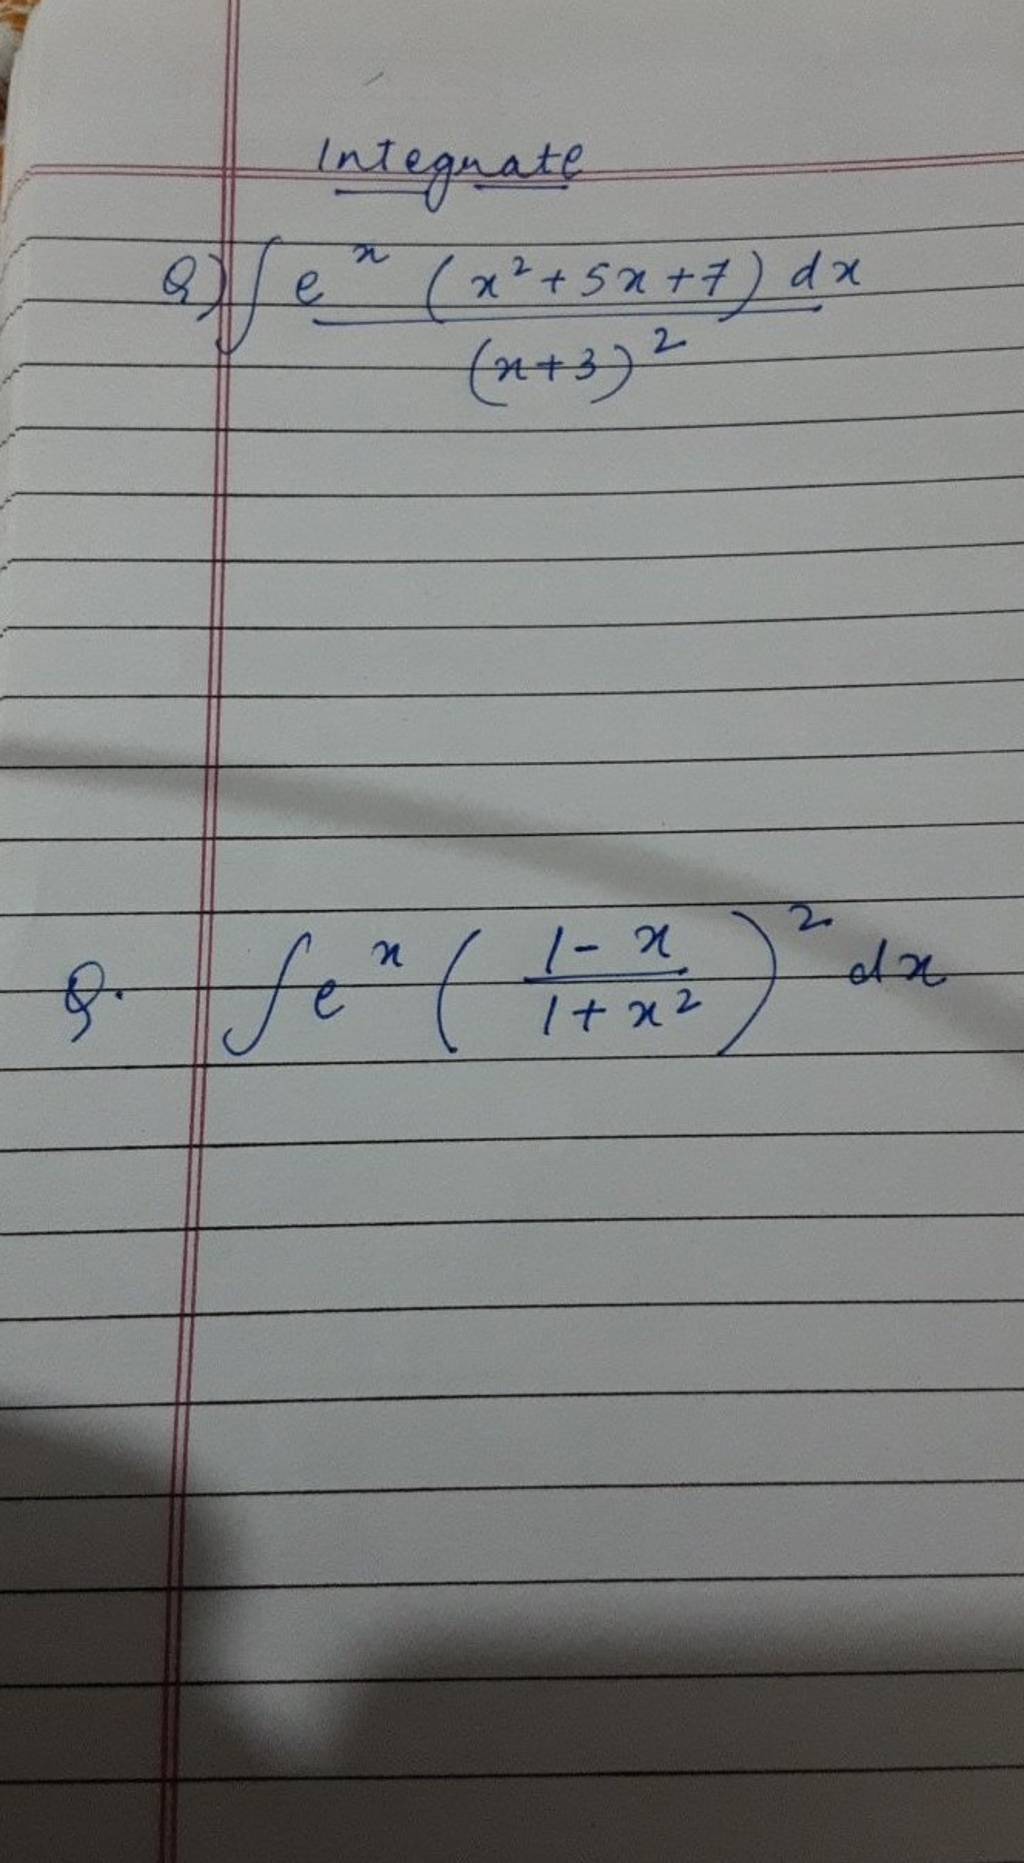 Integrate
Q) ∫ e^x (x² + 5x + 7) dx / (x+3)²
Q. ∫ e^x ( (1 - x) / (1 + x²) )² dx